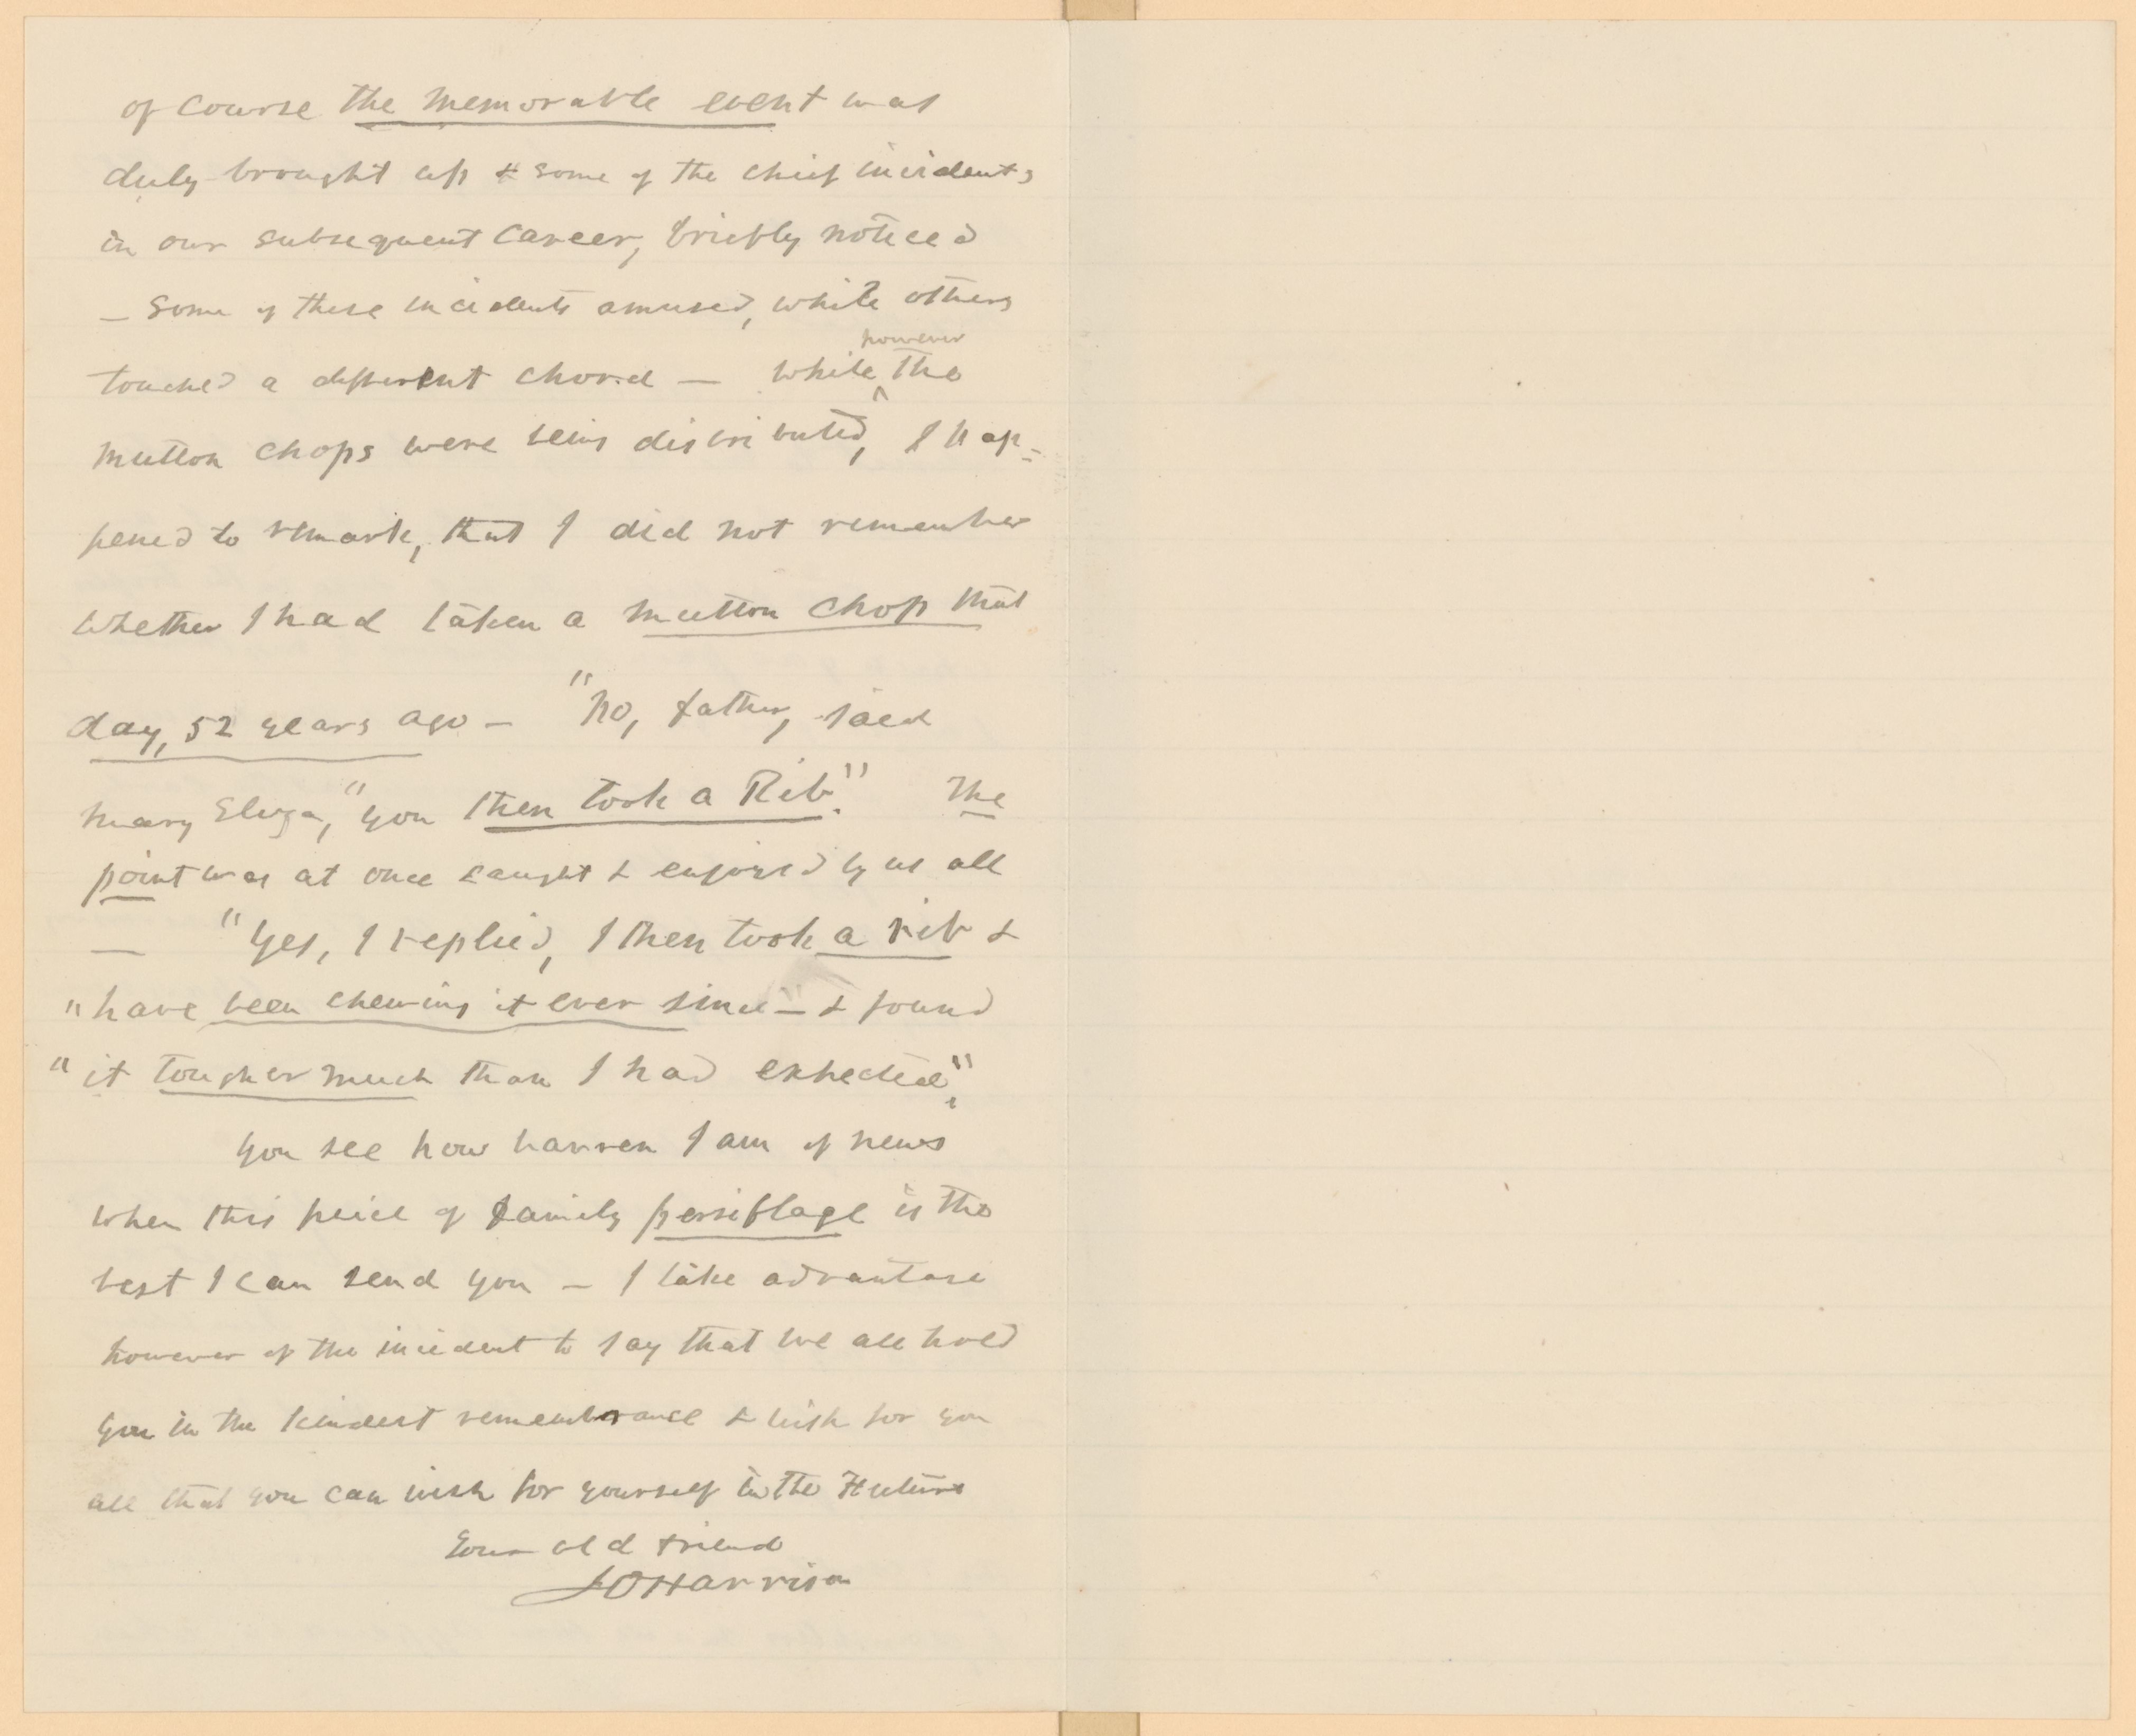 of course the memorable event was
duly brought up & some of the chief incidents
in our subsequent career, briefly noticed
— Some of these incidents amused, while others
touched a different chord — While however the
mutton chops were being distributed, I hap=
pened to remark, that I did not remember
whether I had taken a mutton chop that
day, 52 years ago — "No, father, said
Mary Eliza, "you then took a Rib." The
point was at once caught & enjoyed by us all
— "Yes, I replied, I then took a rib &
"have been chewing it ever since — & found
"it tougher much than I had expected".
You see how barren I am of news
when this peice of family persiflage is the
best I can send you — I take advantage
however of the incident to say that we all hold
you in the kindest remembrance & wish for you
all that you can wish for yourself in the Future
Your old friend
JOHarrison